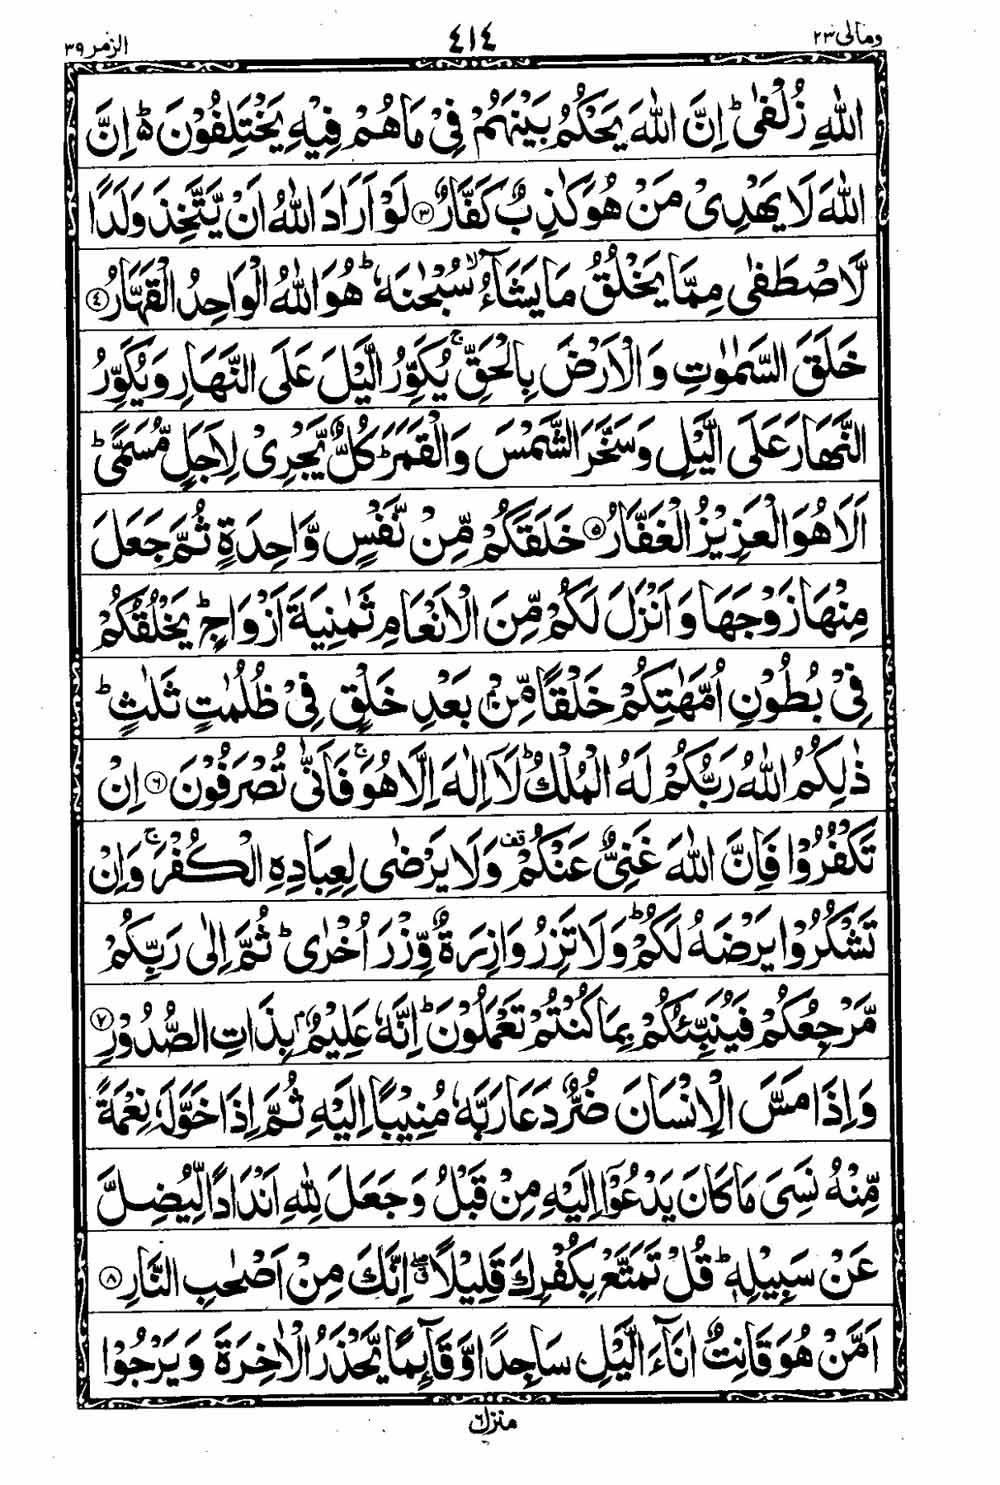 ومالی ۲۳ ٤١٤ الزمر ۳۹
اللّٰهِ زُلْفٰی ؕ اِنَّ اللّٰهَ یَحْكُمُ بَیْنَهُمْ فِیْ مَا هُمْ فِیْهِ یَخْتَلِفُوْنَ ؕ۬ اِنَّ
اللّٰهَ لَا یَهْدِیْ مَنْ هُوَ كٰذِبٌ كَفَّارٌ ۝۳ لَوْ اَرَادَ اللّٰهُ اَنْ یَّتَّخِذَ وَلَدًا
لَّاصْطَفٰی مِمَّا یَخْلُقُ مَا یَشَآءُ ۙ سُبْحٰنَهٗ ؕ هُوَ اللّٰهُ الْوَاحِدُ الْقَهَّارُ ۝۴
خَلَقَ السَّمٰوٰتِ وَالْاَرْضَ بِالْحَقِّ ۚ یُكَوِّرُ الَّیْلَ عَلَی النَّهَارِ وَیُكَوِّرُ
النَّهَارَ عَلَی الَّیْلِ وَسَخَّرَ الشَّمْسَ وَالْقَمَرَ ؕ كُلٌّ یَّجْرِیْ لِاَجَلٍ مُّسَمًّی ؕ
اَلَا هُوَ الْعَزِیْزُ الْغَفَّارُ ۝۵ خَلَقَكُمْ مِّنْ نَّفْسٍ وَّاحِدَةٍ ثُمَّ جَعَلَ
مِنْهَا زَوْجَهَا وَاَنْزَلَ لَكُمْ مِّنَ الْاَنْعَامِ ثَمٰنِیَةَ اَزْوَاجٍ ؕ یَخْلُقُكُمْ
فِیْ بُطُوْنِ اُمَّهٰتِكُمْ خَلْقًا مِّنْۢ بَعْدِ خَلْقٍ فِیْ ظُلُمٰتٍ ثَلٰثٍ ؕ
ذٰلِكُمُ اللّٰهُ رَبُّكُمْ لَهُ الْمُلْكُ ؕ لَاۤ اِلٰهَ اِلَّا هُوَ ۚ فَاَنّٰی تُصْرَفُوْنَ ۝۶ اِنْ
تَكْفُرُوْا فَاِنَّ اللّٰهَ غَنِیٌّ عَنْكُمْ قف وَلَا یَرْضٰی لِعِبَادِهِ الْكُفْرَ ۚ وَاِنْ
تَشْكُرُوْا یَرْضَهُ لَكُمْ ؕ وَلَا تَزِرُ وَازِرَةٌ وِّزْرَ اُخْرٰی ؕ ثُمَّ اِلٰی رَبِّكُمْ
مَّرْجِعُكُمْ فَیُنَبِّئُكُمْ بِمَا كُنْتُمْ تَعْمَلُوْنَ ؕ اِنَّهٗ عَلِیْمٌۢ بِذَاتِ الصُّدُوْرِ ۝۷
وَاِذَا مَسَّ الْاِنْسَانَ ضُرٌّ دَعَا رَبَّهٗ مُنِیْبًا اِلَیْهِ ثُمَّ اِذَا خَوَّلَهٗ نِعْمَةً
مِّنْهُ نَسِیَ مَا كَانَ یَدْعُوْۤا اِلَیْهِ مِنْ قَبْلُ وَجَعَلَ لِلّٰهِ اَنْدَادًا لِّیُضِلَّ
عَنْ سَبِیْلِهٖ ؕ قُلْ تَمَتَّعْ بِكُفْرِكَ قَلِیْلًا ۖ اِنَّكَ مِنْ اَصْحٰبِ النَّارِ ۝۸
اَمَّنْ هُوَ قَانِتٌ اٰنَآءَ الَّیْلِ سَاجِدًا وَّقَآىِٕمًا یَّحْذَرُ الْاٰخِرَةَ وَیَرْجُوْا
منزل ٦